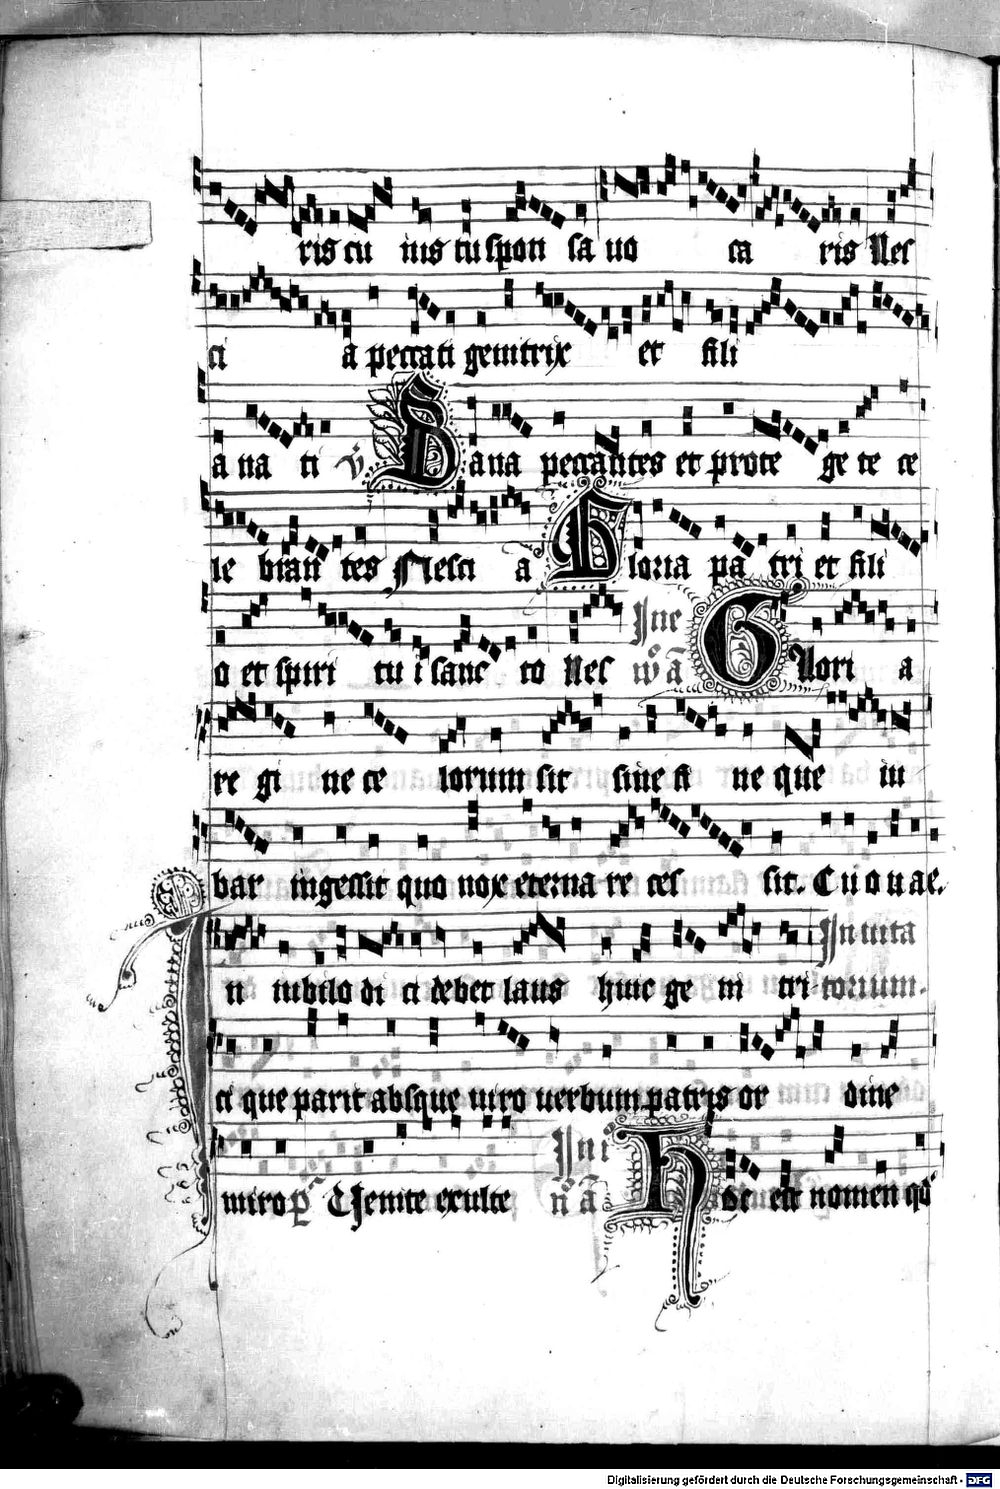 ris cu ius tu spon sa uo ca ris Nes
ci a peccati genitrix et fili
a na ti v̄ Sana peccantes et prote ge te ce
le bran tes Nesci a Gloria pa tri et fili
o et spiri tu i sanc to Nes Glori a
re gi ne ce lorum sit sine fi ne que iu
bar ingessit quo nox eterna re ces sit. Euouae.
In iubilo di ci debet laus huic ge ni tri Inuita
torium.
ci que parit absque uiro uerbum patris or dine
miro p̱ Uenite exulte In i n̊ ā Hde est nomen qd̄
Digitalisierung gefördert durch die Deutsche Forschungsgemeinschaft - DFG